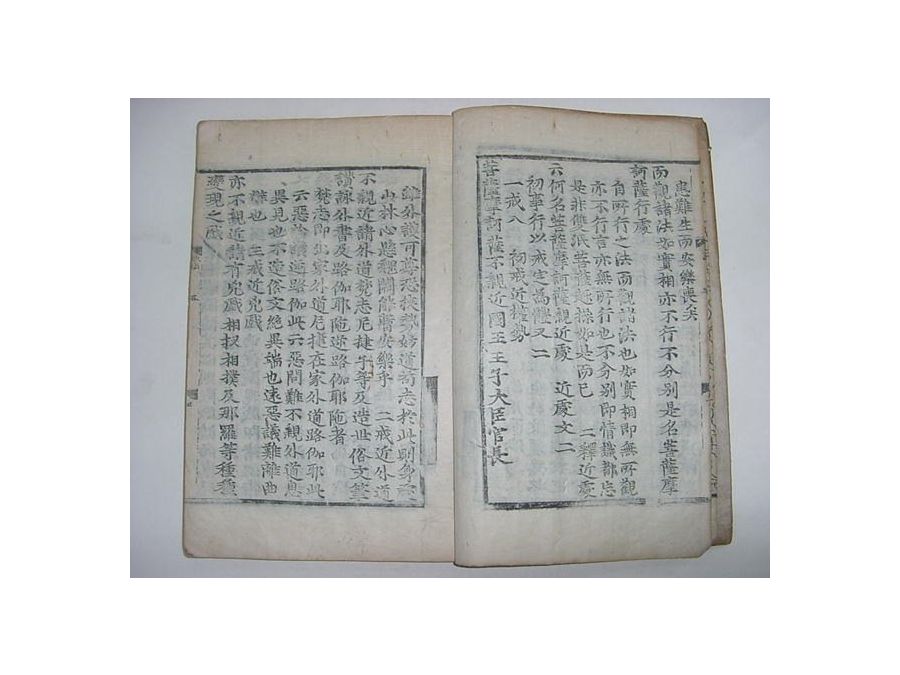 患難生而安樂喪矣
而觀諸法如實相亦不行不分別是名菩薩摩
訶薩行處
有所行之法而觀諸法也如實相即無所觀
亦不行言亦無所行也不分別即情識都忘
是非雙泯菩薩趣操如是而已 二釋近處
云何名菩薩摩訶薩親近處 近處文二
初事行以戒定為懷又二
一戒八 初戒近權勢
菩薩摩訶薩不親近國王王子大臣官長
雖外護可尊恐挾勢妨道苟志於此則身
山林心懸魏闕能暫安樂乎 二戒近外道
不親近諸外道梵志尼揵子等及造世俗文筆
讚詠外書及路伽耶陁逆路伽耶陁者
梵志即出家外道尼揵在家外道路伽耶此
云惡論逆路伽此云惡問難不親外道息
異見也不造俗文絕異端也遠惡議難離曲
辯也 三戒近兇戲
亦不親近諸有兇戲相扠相撲及那羅等種種
變現之戲